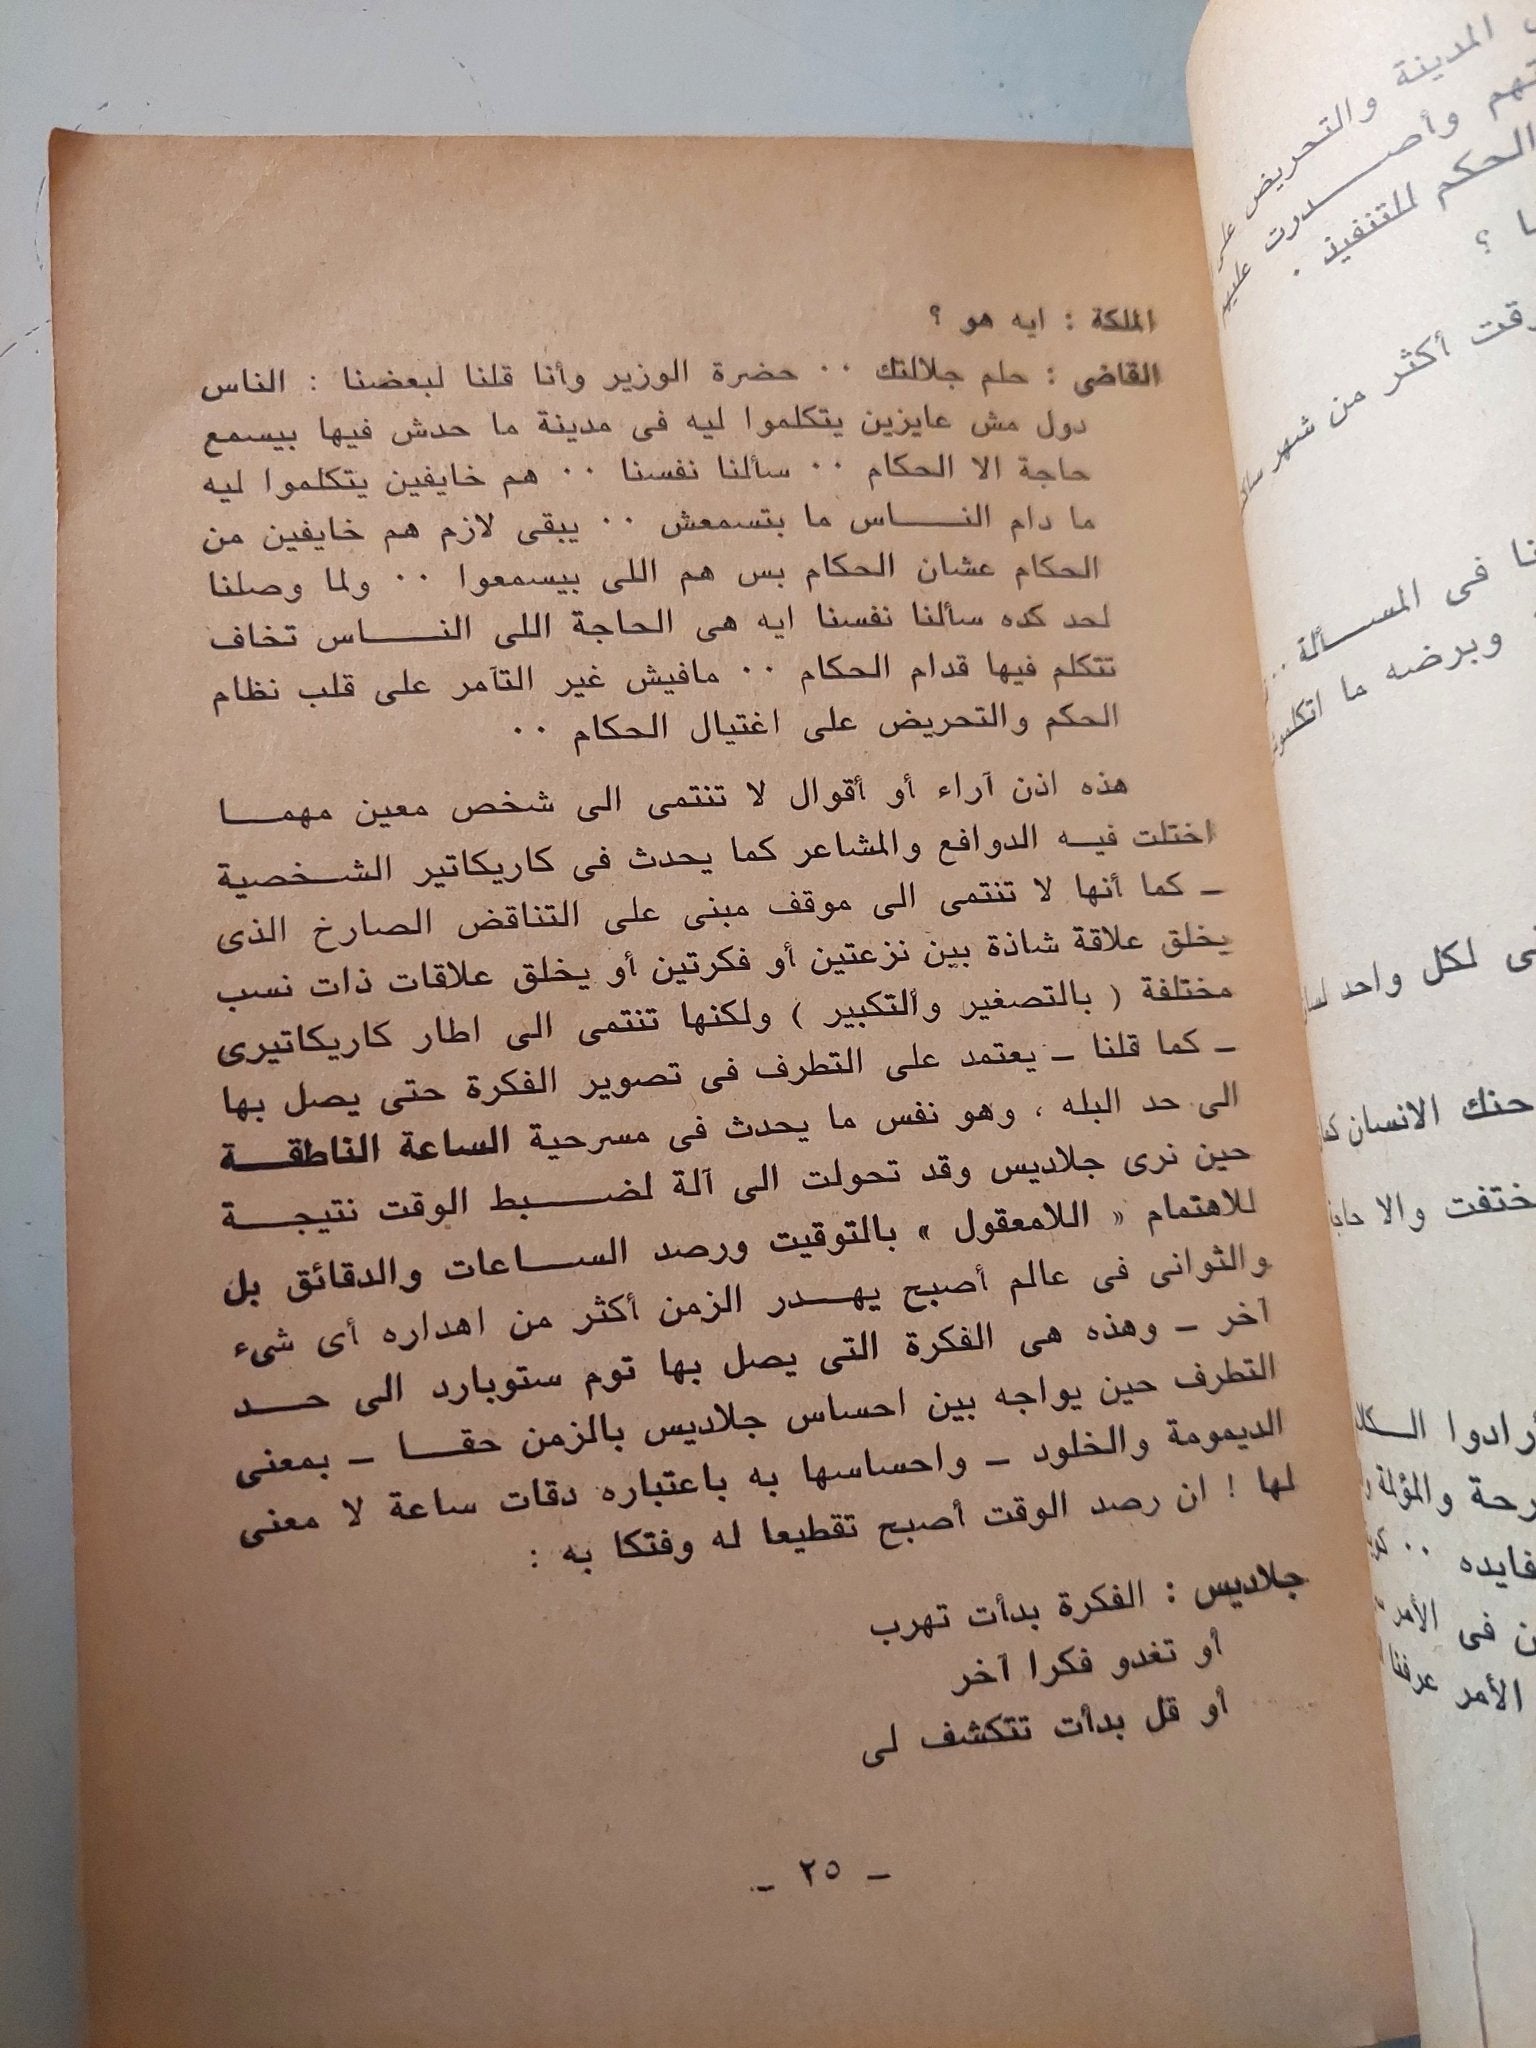 الملكة : ايه هو ؟
القاضى : حلم جلالتك ٠٠ حضرة الوزير وأنا قلنا لبعضنا : الناس
دول مش عايزين يتكلموا ليه فى مدينة ما حدش فيها بيسمع
حاجة الا الحكام ٠٠ سألنا نفسنا ٠٠ هم خايفين يتكلموا ليه
ما دام النـاس ما بتسمعش ٠٠ يبقى لازم هم خايفين من
الحكام عشان الحكام بس هم اللى بيسمعوا ٠٠ ولما وصلنا
لحد كده سألنا نفسنا ايه هى الحاجة اللى النـاس تخاف
تتكلم فيها قدام الحكام ٠٠ مافيش غير التآمر على قلب نظام
الحكم والتحريض على اغتيال الحكام ٠٠
هذه اذن آراء أو أقوال لا تنتمى الى شخص معين مهمـا
اختلت فيه الدوافع والمشاعر كما يحدث فى كاريكاتير الشخصية
ـ كما أنها لا تنتمى الى موقف مبنى على التناقض الصارخ الذى
يخلق علاقة شاذة بين نزعتين أو فكرتين أو يخلق علاقات ذات نسب
مختلفة ( بالتصغير والتكبير ) ولكنها تنتمى الى اطار كاريكاتيرى
ـ كما قلنا ـ يعتمد على التطرف فى تصوير الفكرة حتى يصل بها
الى حد البله ، وهو نفس ما يحدث فى مسرحية الساعة الناطقـة
حين نرى جلاديس وقد تحولت الى آلة لضبط الوقت نتيجـة
للاهتمام « اللامعقول » بالتوقيت ورصد السـاعات والدقائق بل
والثوانى فى عالم أصبح يهـدر الزمن أكثر من اهداره أى شىء
آخر ـ وهذه هى الفكرة التى يصل بها توم ستوبارد الى حـد
التطرف حين يواجه بين احساس جلاديس بالزمن حقـا ـ بمعنى
الديمومة والخلود ـ واحساسها به باعتباره دقات ساعة لا معنى
لها ! ان رصد الوقت أصبح تقطيعا له وفتكا به :
جلاديس : الفكرة بدأت تهرب
أو تغدو فكرا آخر
أو قل بدأت تتكشف لى
ـ ٢٥ ـ
المدينة والتحريض
وأصـدرت
الحكم للتنفيذ ٠
أكثر من شهر
فى المسـألة ٠٠
وبرضه ما
لكل واحد
حنك الانسان
والا
أرادوا
والمؤلمة
فايده ٠٠
فى الأمر
الأمر عرفنا